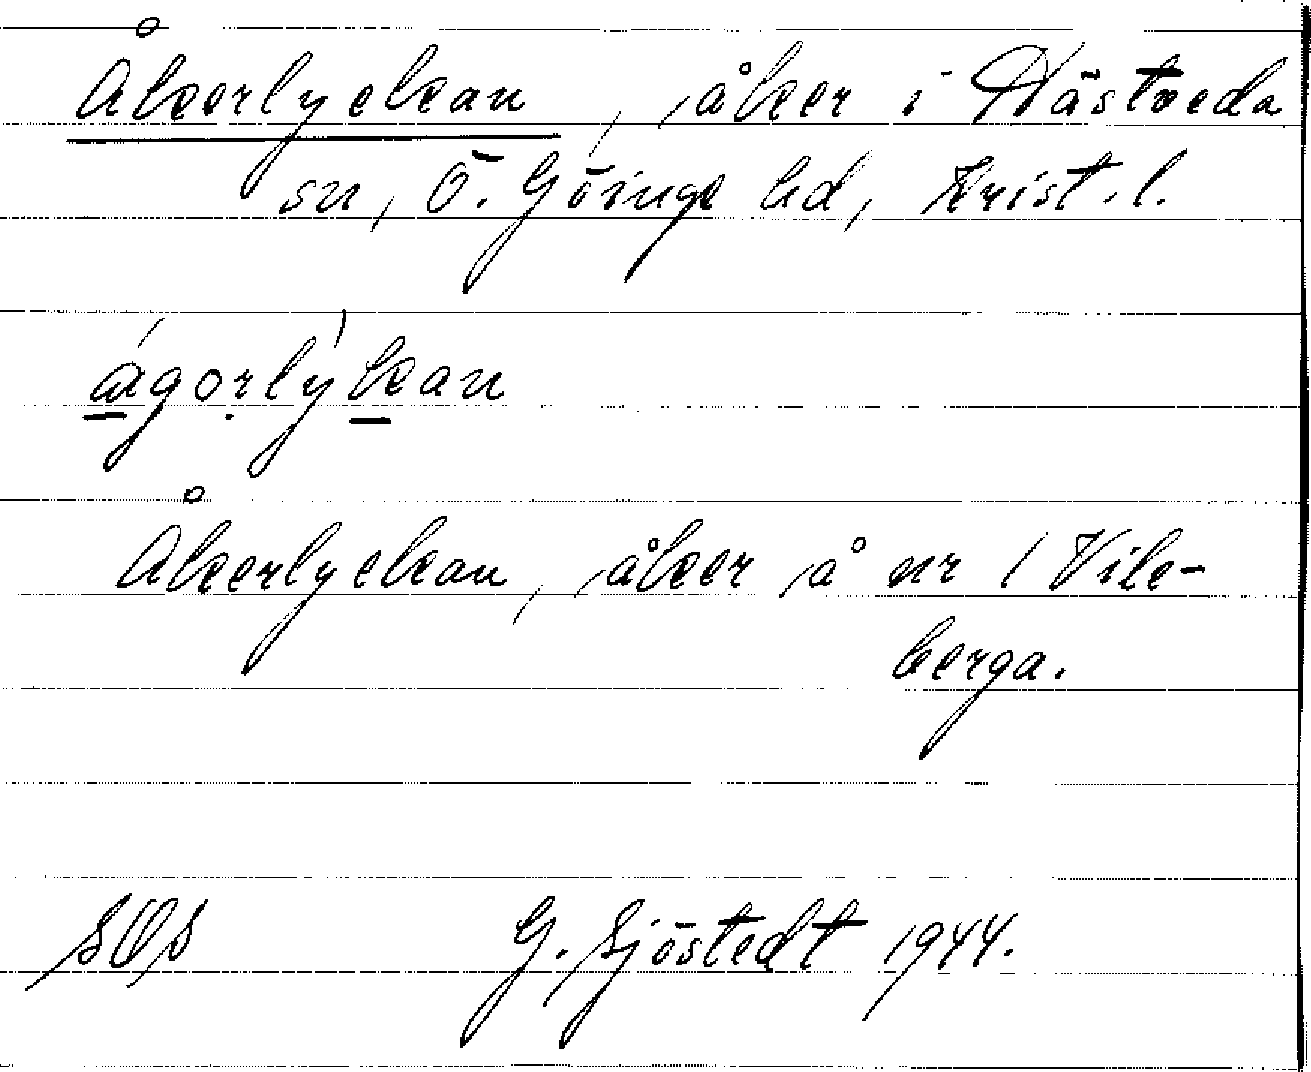 Åkerlyckan, åker i Hästveda
sn, Ö. Göinge hd, Krist. l.
ágorlỳkan
Åkerlyckan, åker å nr 1 Vile-
berga.
SOS G. Sjöstedt 1944.